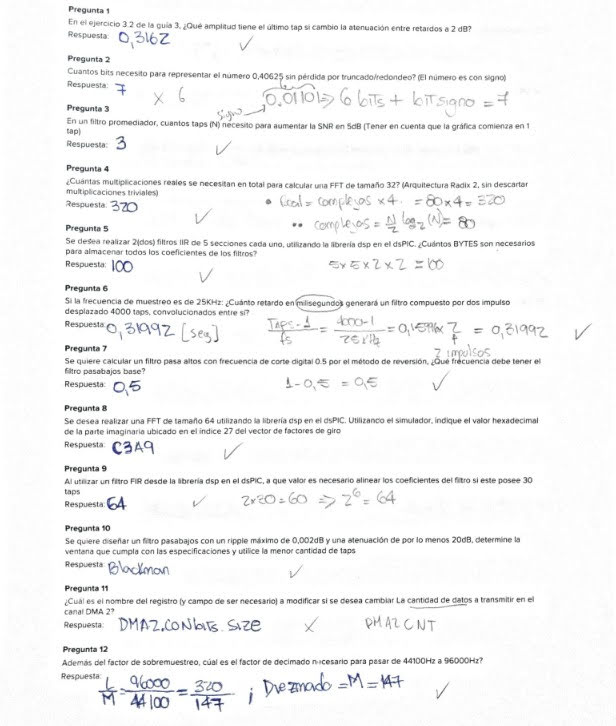 Pregunta 1
En el ejercicio 3.2 de la guía 3, ¿Qué amplitud tiene el último tap si cambio la atenuación entre retardos a 2 dB?
Respuesta: 0,3162
Pregunta 2
Cuantos bits necesito para representar el numero 0,40625 sin pérdida por truncado/redondeo? (El número es con signo)
Respuesta: 7 x 6 0.01101 => 6 bits + bit signo = 7
signo
Pregunta 3
En un filtro promediador, cuantos taps (N) necesito para aumentar la SNR en 5dB (Tener en cuenta que la gráfica comienza en 1
tap)
Respuesta: 3
Pregunta 4
¿Cuántas multiplicaciones reales se necesitan en total para calcular una FFT de tamaño 32? (Arquitectura Radix 2, sin descartar
multiplicaciones triviales)
Respuesta: 320 • Cread = complejos × 4 = 80 × 4 = 320
•• complejos = N/2 log2 (N) = 80
Pregunta 5
Se desea realizar 2(dos) filtros IIR de 5 secciones cada uno, utilizando la librería dsp en el dsPIC. ¿Cuántos BYTES son necesarios
para almacenar todos los coeficientes de los filtros?
Respuesta: 100 5 x 5 x 2 x 2 = 100
Pregunta 6
Si la frecuencia de muestreo es de 25KHz: ¿Cuánto retardo en milisegundos generará un filtro compuesto por dos impulso
desplazado 4000 taps, convolucionados entre sí?
Respuesta: 0,31992 [seg] Taps - 1 / fs = 4000-1 / 25 kHz = 0,1596 x 2 = 0,31992
2 impulsos
Pregunta 7
Se quiere calcular un filtro pasa altos con frecuencia de corte digital 0.5 por el método de reversión, ¿Qué frecuencia debe tener el
filtro pasabajos base?
Respuesta: 0,5 1 - 0,5 = 0,5
Pregunta 8
Se desea realizar una FFT de tamaño 64 utilizando la librería dsp en el dsPIC. Utilizando el simulador, indique el valor hexadecimal
de la parte imaginaria ubicado en el índice 27 del vector de factores de giro
Respuesta: C3A9
Pregunta 9
Al utilizar un filtro FIR desde la librería dsp en el dsPIC, a que valor es necesario alinear los coeficientes del filtro si este posee 30
taps
Respuesta: 64 2x30 = 60 => 2^6 = 64
Pregunta 10
Se quiere diseñar un filtro pasabajos con un ripple máximo de 0,002dB y una atenuación de por lo menos 20dB, determine la
ventana que cumpla con las especificaciones y utilice la menor cantidad de taps
Respuesta: Blackman
Pregunta 11
¿Cuál es el nombre del registro (y campo de ser necesario) a modificar si se desea cambiar La cantidad de datos a transmitir en el
canal DMA 2?
Respuesta: DMA2.CONbits.SIZE X DMA2CNT
Pregunta 12
Además del factor de sobremuestreo, cúal es el factor de decimado necesario para pasar de 44100Hz a 96000Hz?
Respuesta: L/M = 96000/44100 = 320/147 ; Diezmado = M = 147